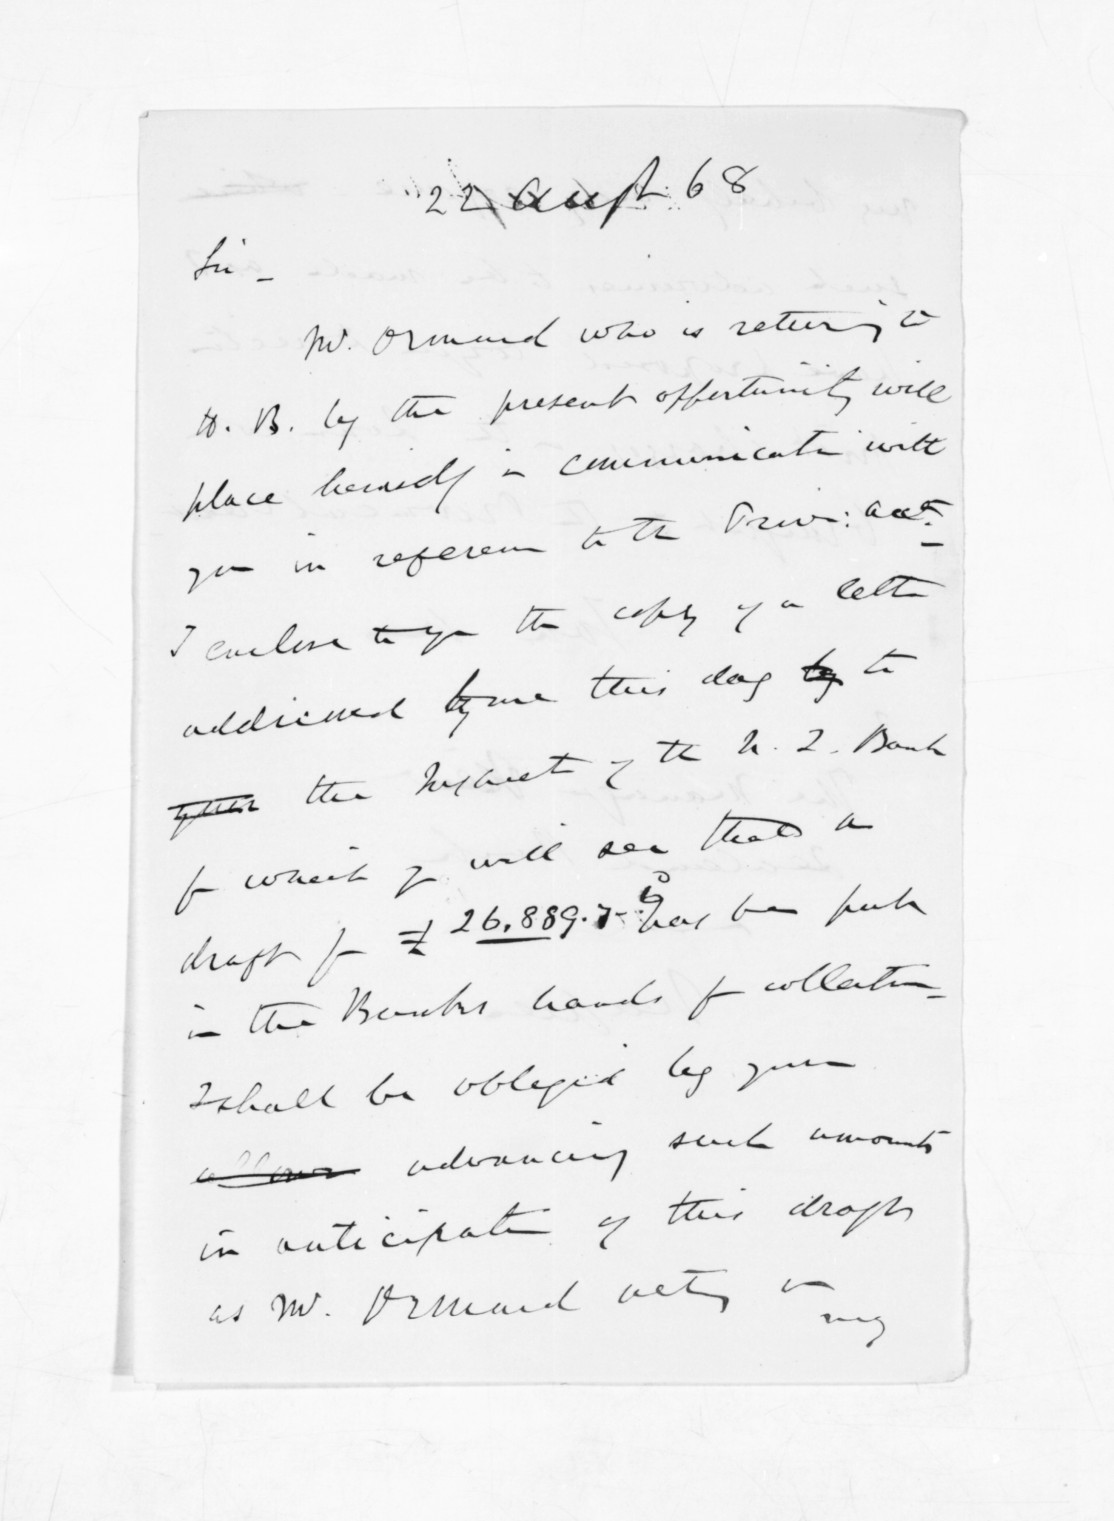 22 Augt 68
Sir -
Mr. Ormond who is returning to
H. B. by the present opportunity will
place himself in communication with
you in reference to the Prov: acct.
I enclose to you the copy of a letter
addressed by me this day to
the Inspector of the N. Z. Bank
fr which you will see that a
draft for £ 26,889.7- has been put
in the Banks hands for collection -
I shall be obliged by your
allow advancing such amounts
in anticipation of this draft
as Mr. Ormond acting on
my